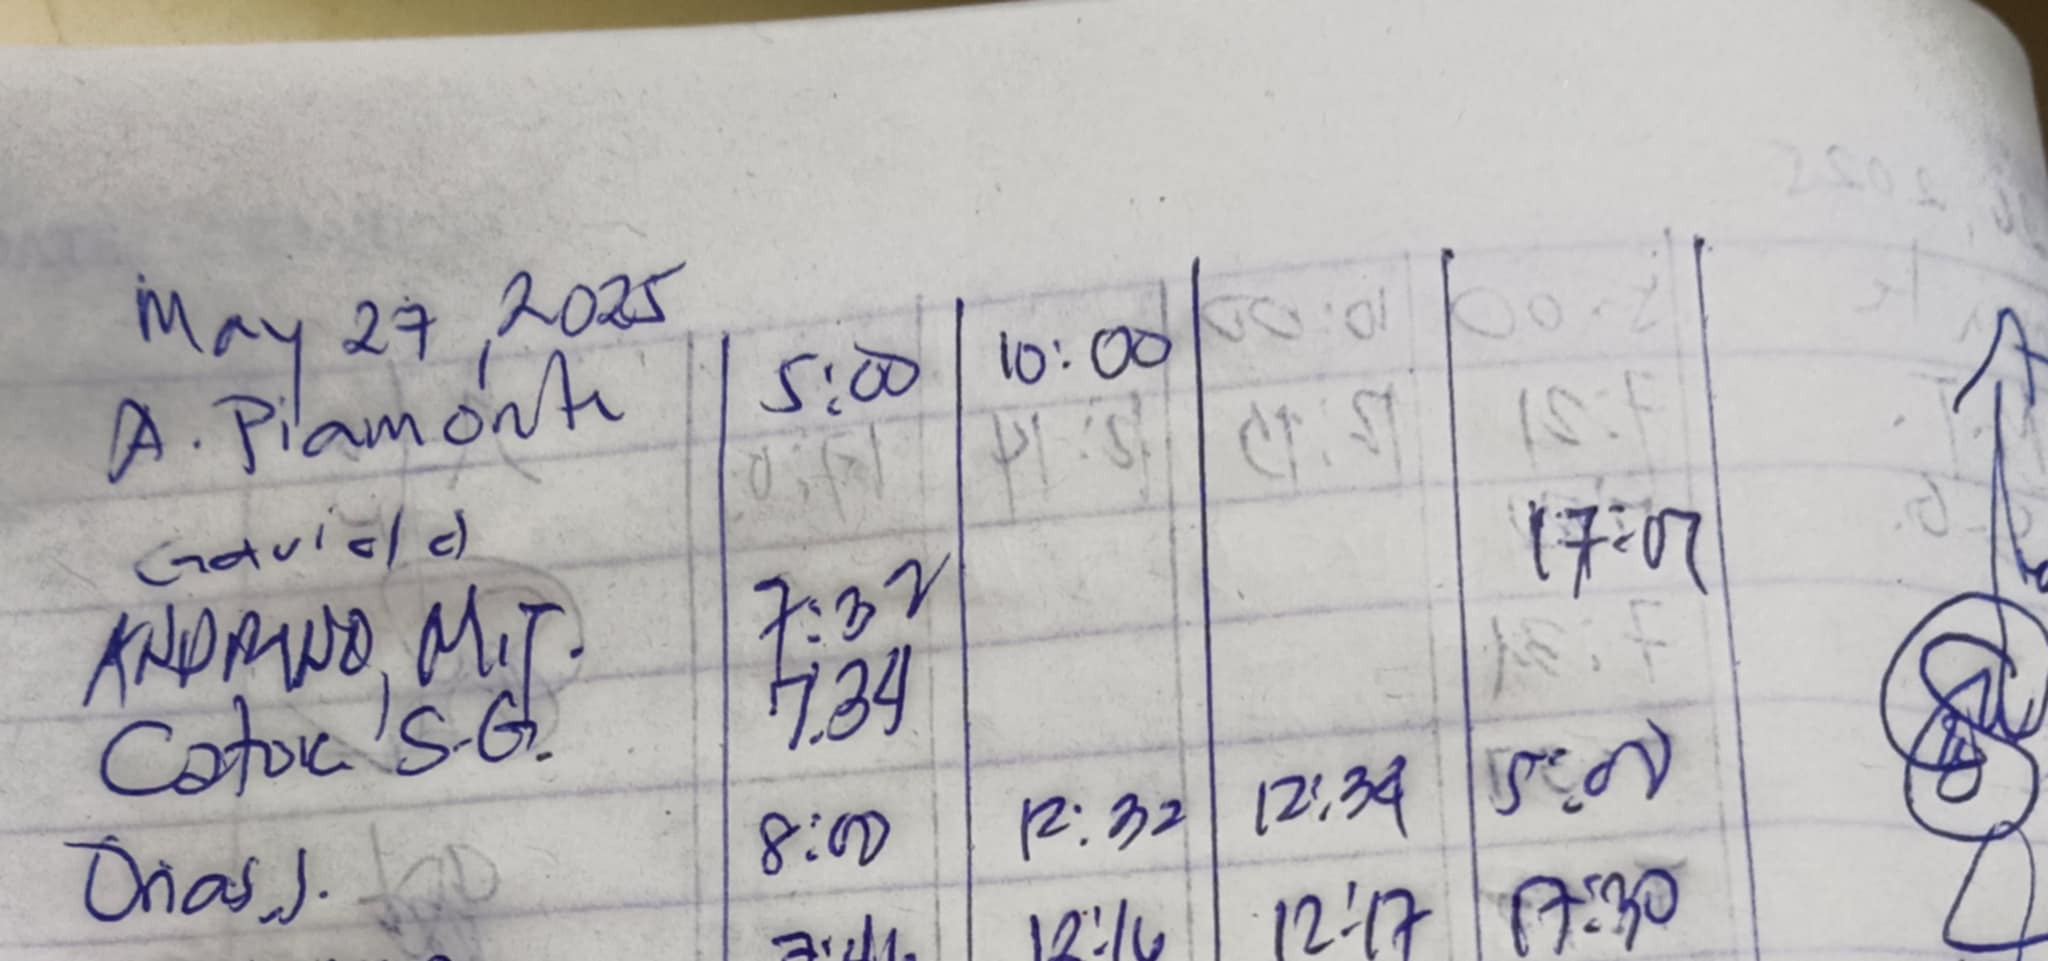 May 27, 2025
A. Piamonte 5:00 10:00
Gaviola 17:07
ANDRINO, M.J. 7:32
Catok S.G. 7:34
8:00 12:32 12:34 5:00
Orias, J.
12:16 12:17 17:30